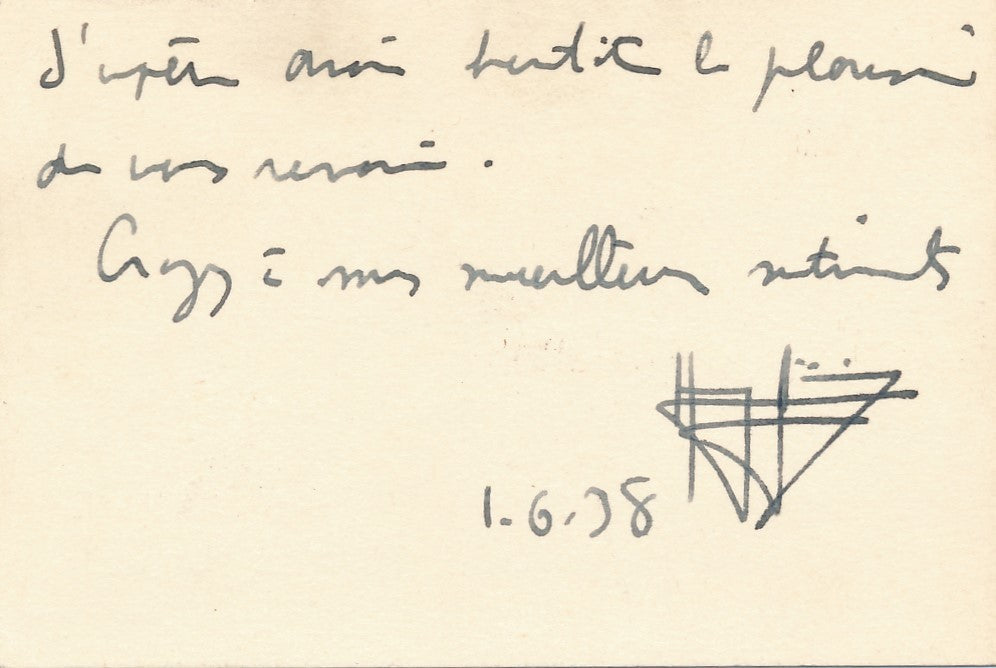 J'espère avoir bientôt le plaisir
de vous revoir.
Croyez à mes meilleurs sentiments
1.6.38